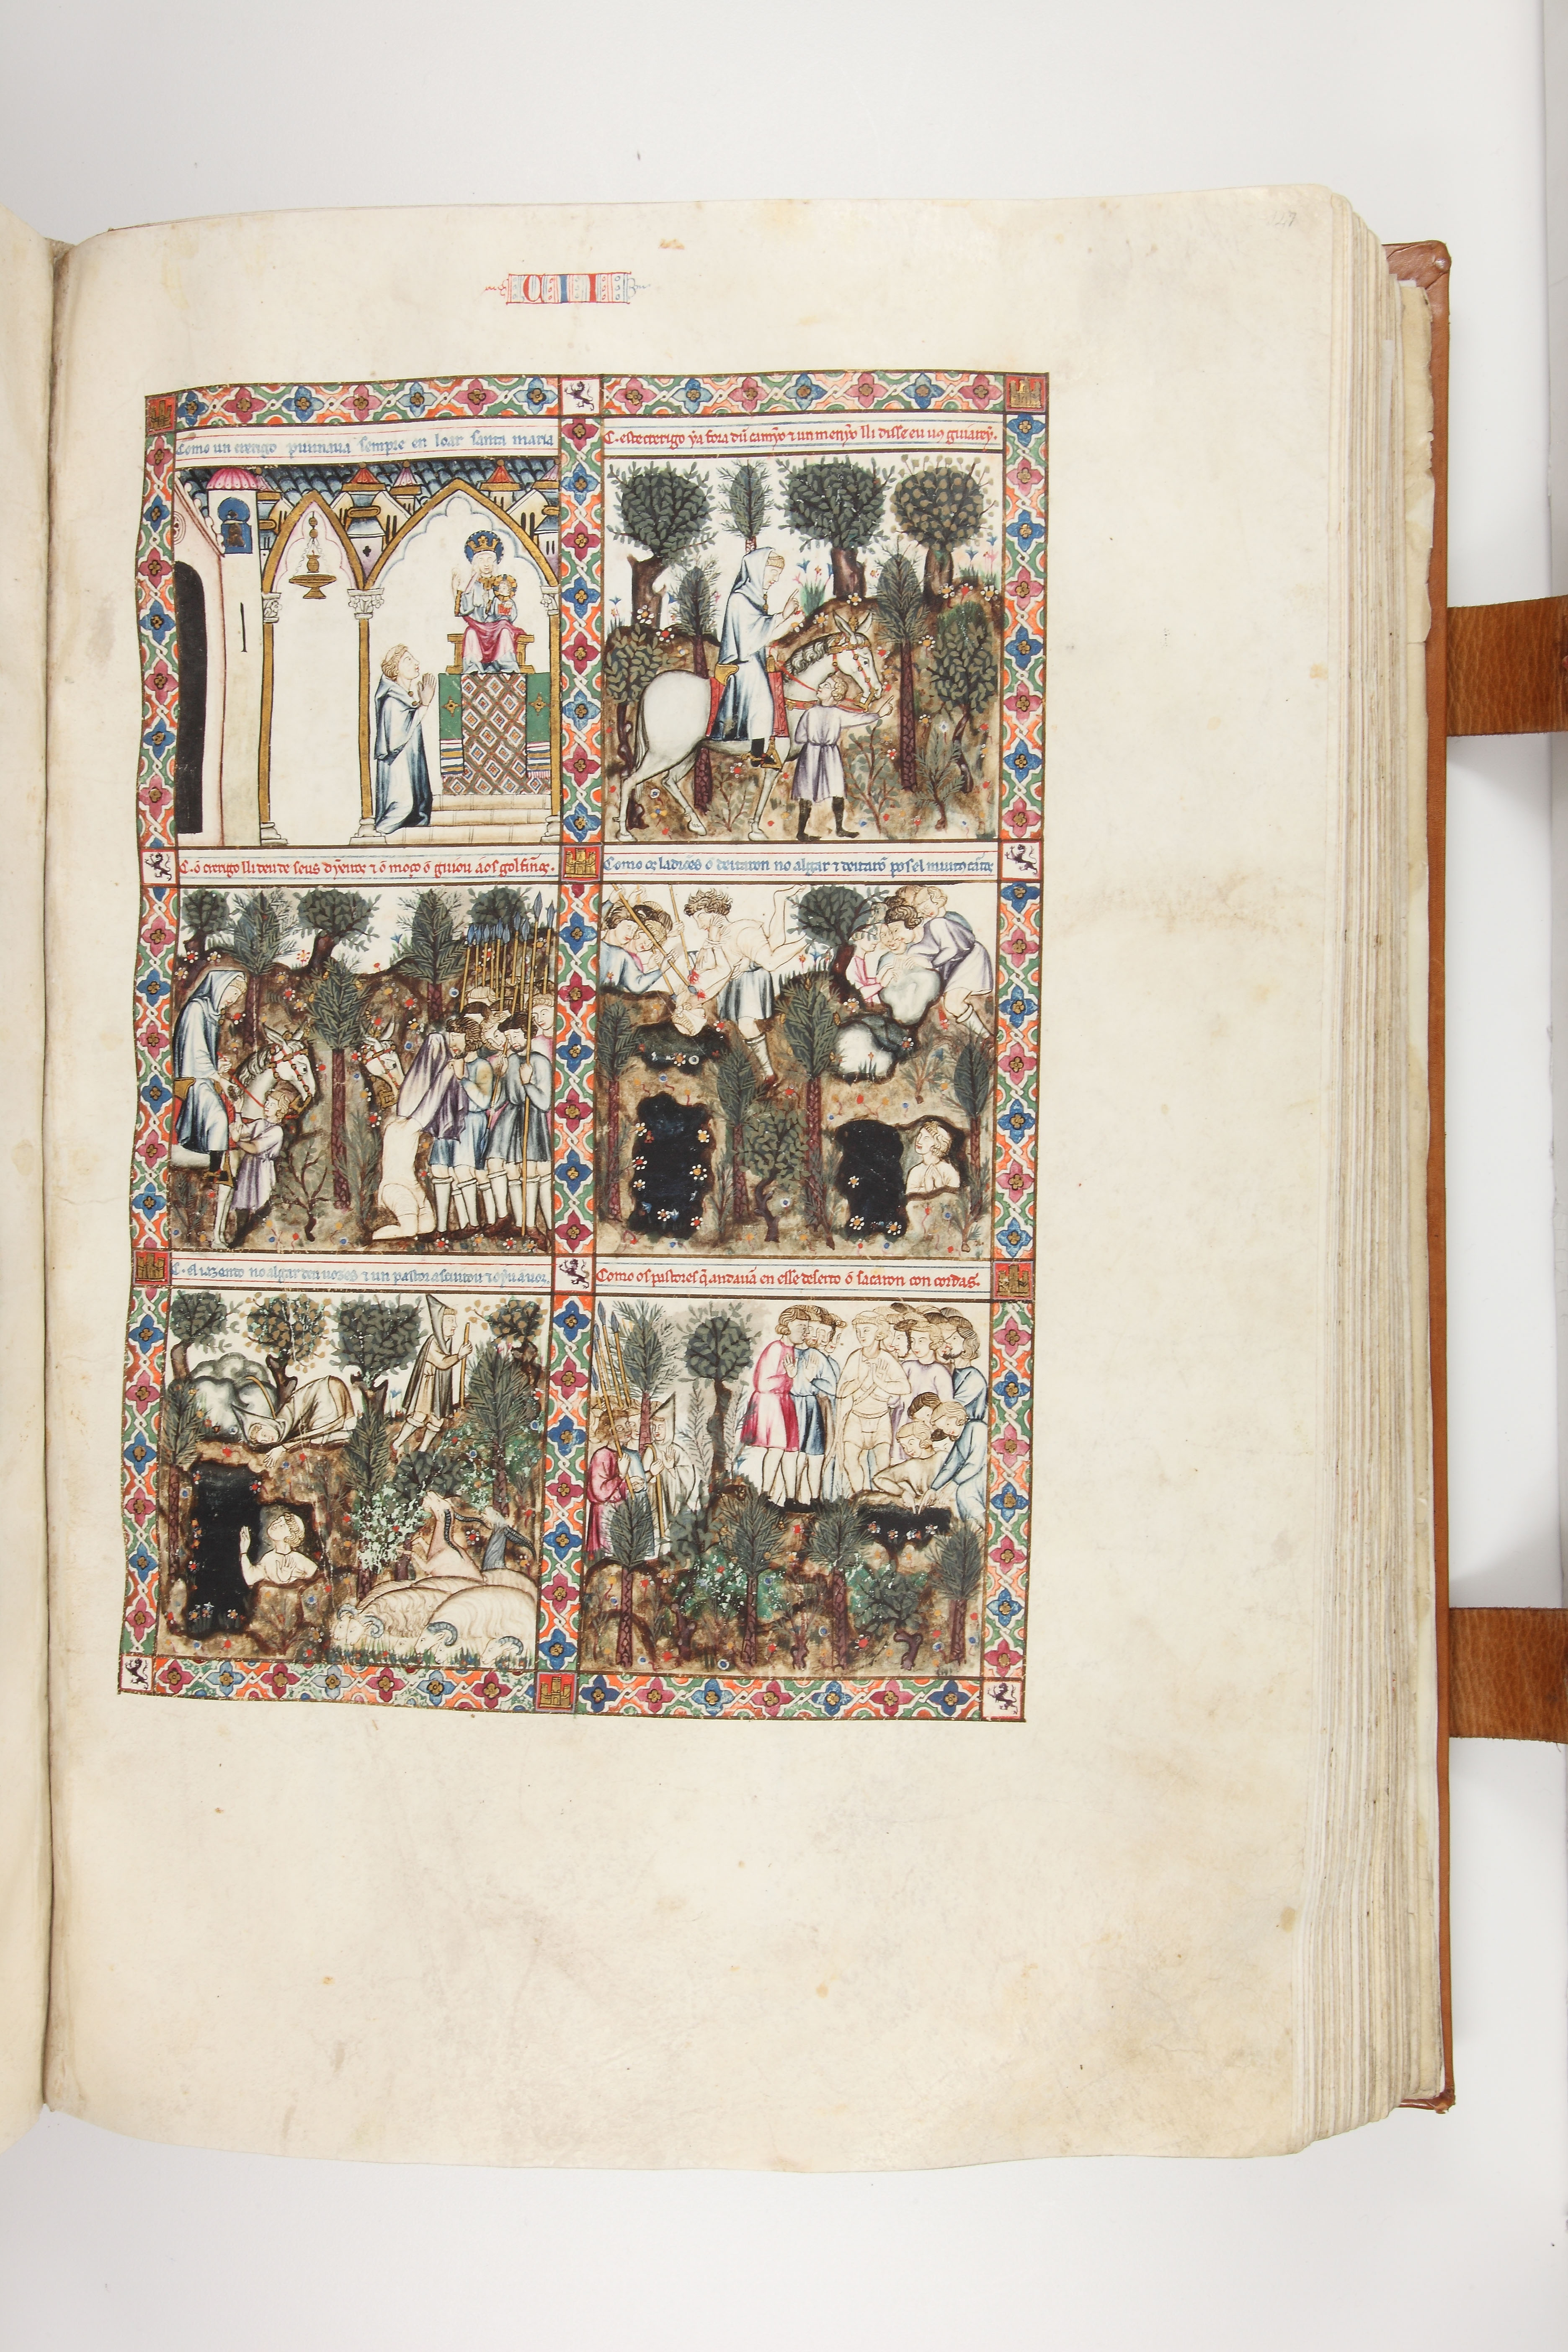 CII
147
Como un crerigo punnaua sempre en loar santa maria
C. este crerigo ya fora dũ camỹo ⁊ un menỹo lli disse eu uꝯ guiarey.
C. o crerigo lli deu de seus dỹeiros ⁊ o moço o guiou aos golfiños.
Como os ladrões o deitaron no algar ⁊ deitarõ pos el muitos cãtos
C. el iazendo no algar deu uozes ⁊ un pastor ascuitou
Como os pastores q̃ andauã en esse deserto o sacaron con cordas.